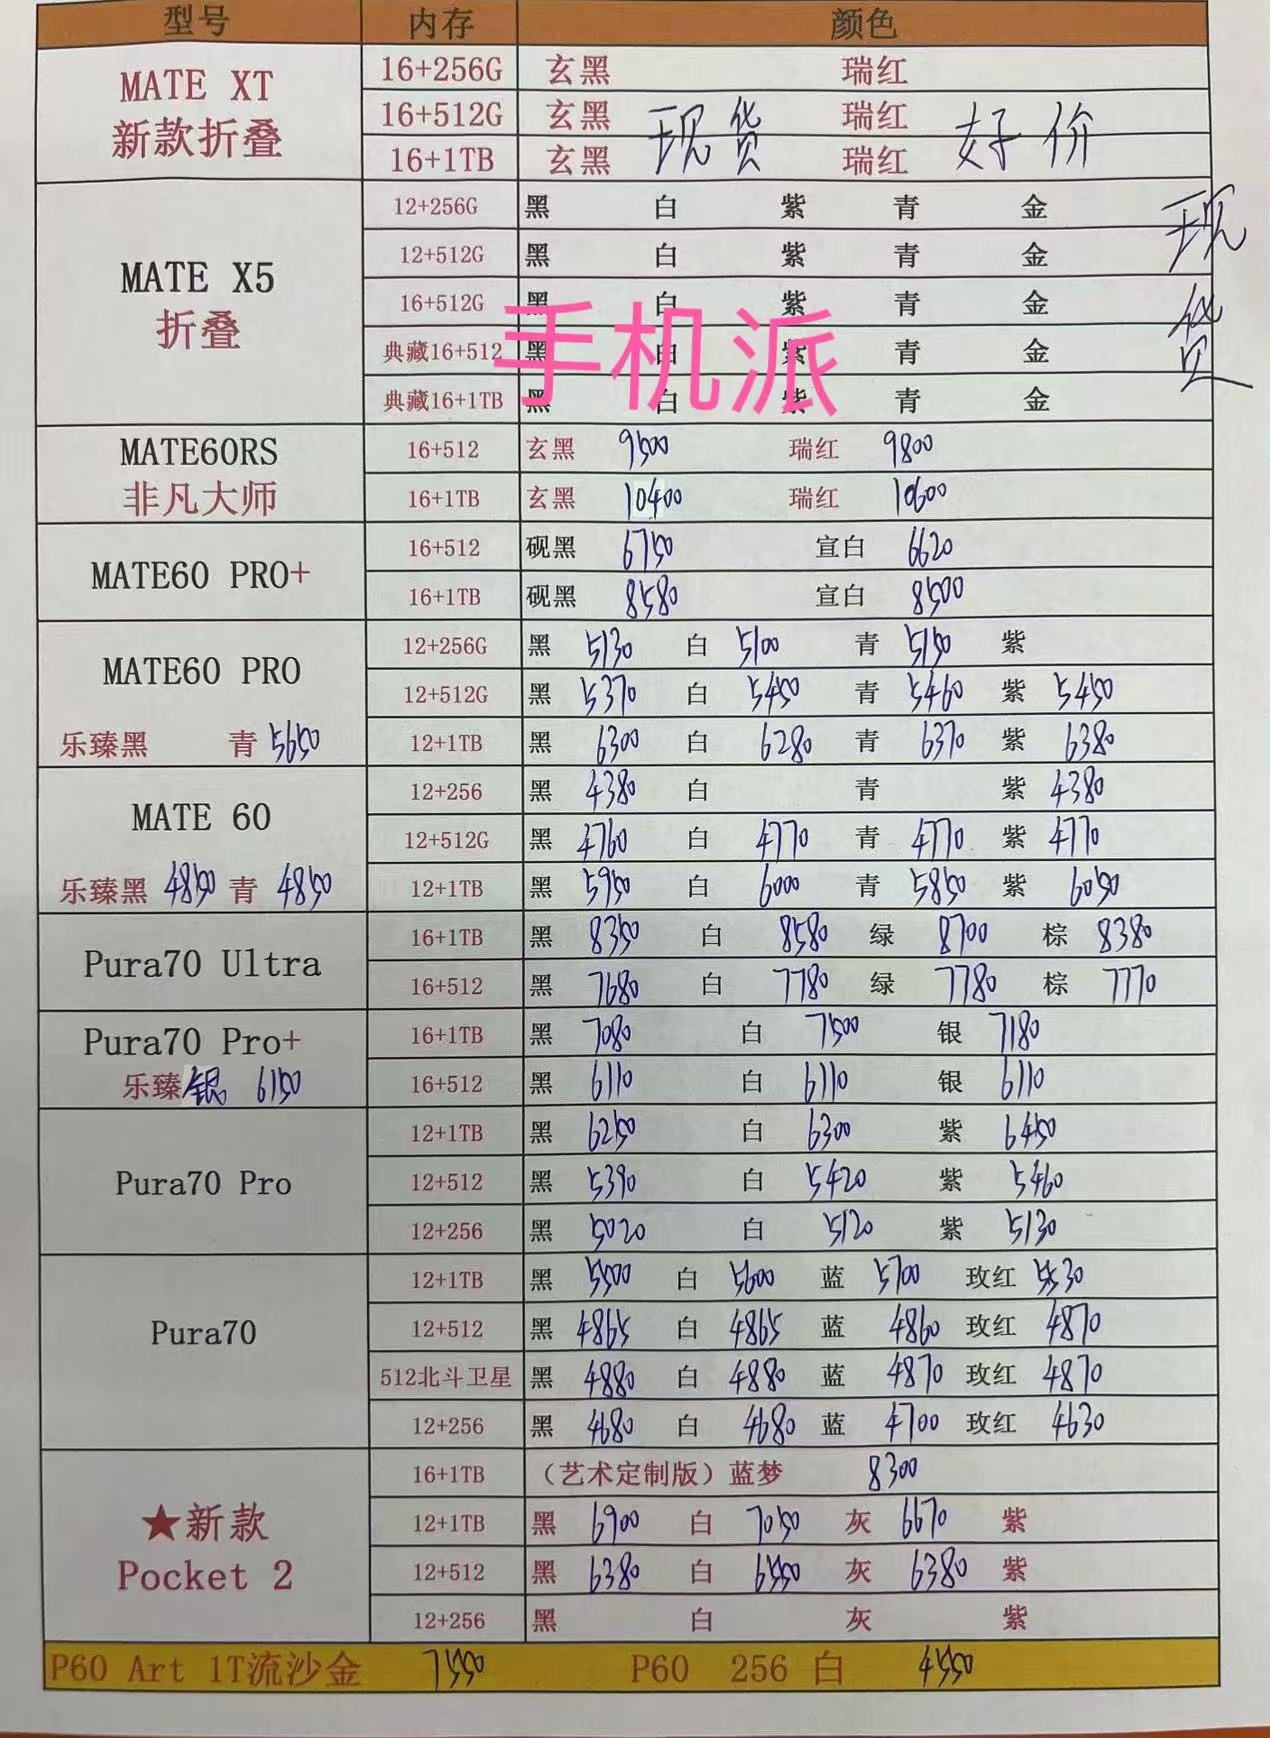 型号 内存 颜色
MATE XT
新款折叠
16+256G 玄黑 瑞红
16+512G 玄黑 瑞红
16+1TB 玄黑 瑞红
现货 好价
MATE X5
折叠
12+256G 黑 白 紫 青 金
12+512G 黑 白 紫 青 金
16+512G 黑 白 紫 青 金
典藏16+512 黑 白 紫 青 金
典藏16+1TB 黑 白 紫 青 金
现货
手机派
MATE60RS
非凡大师
16+512 玄黑 9500 瑞红 9800
16+1TB 玄黑 10400 瑞红 10600
MATE60 PRO+
16+512 砚黑 6750 宣白 6620
16+1TB 砚黑 8580 宣白 8500
MATE60 PRO
乐臻黑 青 5650
12+256G 黑 5130 白 5100 青 5150 紫
12+512G 黑 5370 白 5450 青 5460 紫 5450
12+1TB 黑 6300 白 6280 青 6370 紫 6380
MATE 60
乐臻黑 4850 青 4850
12+256 黑 4380 白 青 紫 4380
12+512G 黑 4760 白 4770 青 4770 紫 4770
12+1TB 黑 5950 白 6000 青 5850 紫 6050
Pura70 Ultra
16+1TB 黑 8350 白 8580 绿 8700 棕 8380
16+512 黑 7680 白 7780 绿 7780 棕 7770
Pura70 Pro+
乐臻银 6150
16+1TB 黑 7080 白 7500 银 7180
16+512 黑 6110 白 6110 银 6110
Pura70 Pro
12+1TB 黑 6250 白 6300 紫 6450
12+512 黑 5390 白 5420 紫 5460
12+256 黑 5020 白 5120 紫 5130
Pura70
12+1TB 黑 5500 白 5600 蓝 5700 玫红 5530
12+512 黑 4865 白 4865 蓝 4860 玫红 4870
512北斗卫星 黑 4880 白 4880 蓝 4870 玫红 4870
12+256 黑 4680 白 4680 蓝 4700 玫红 4630
★新款
Pocket 2
16+1TB (艺术定制版)蓝梦 8300
12+1TB 黑 6900 白 7050 灰 6670 紫
12+512 黑 6380 白 6550 灰 6380 紫
12+256 黑 白 灰 紫
P60 Art 1T流沙金 7550 P60 256 白 4550